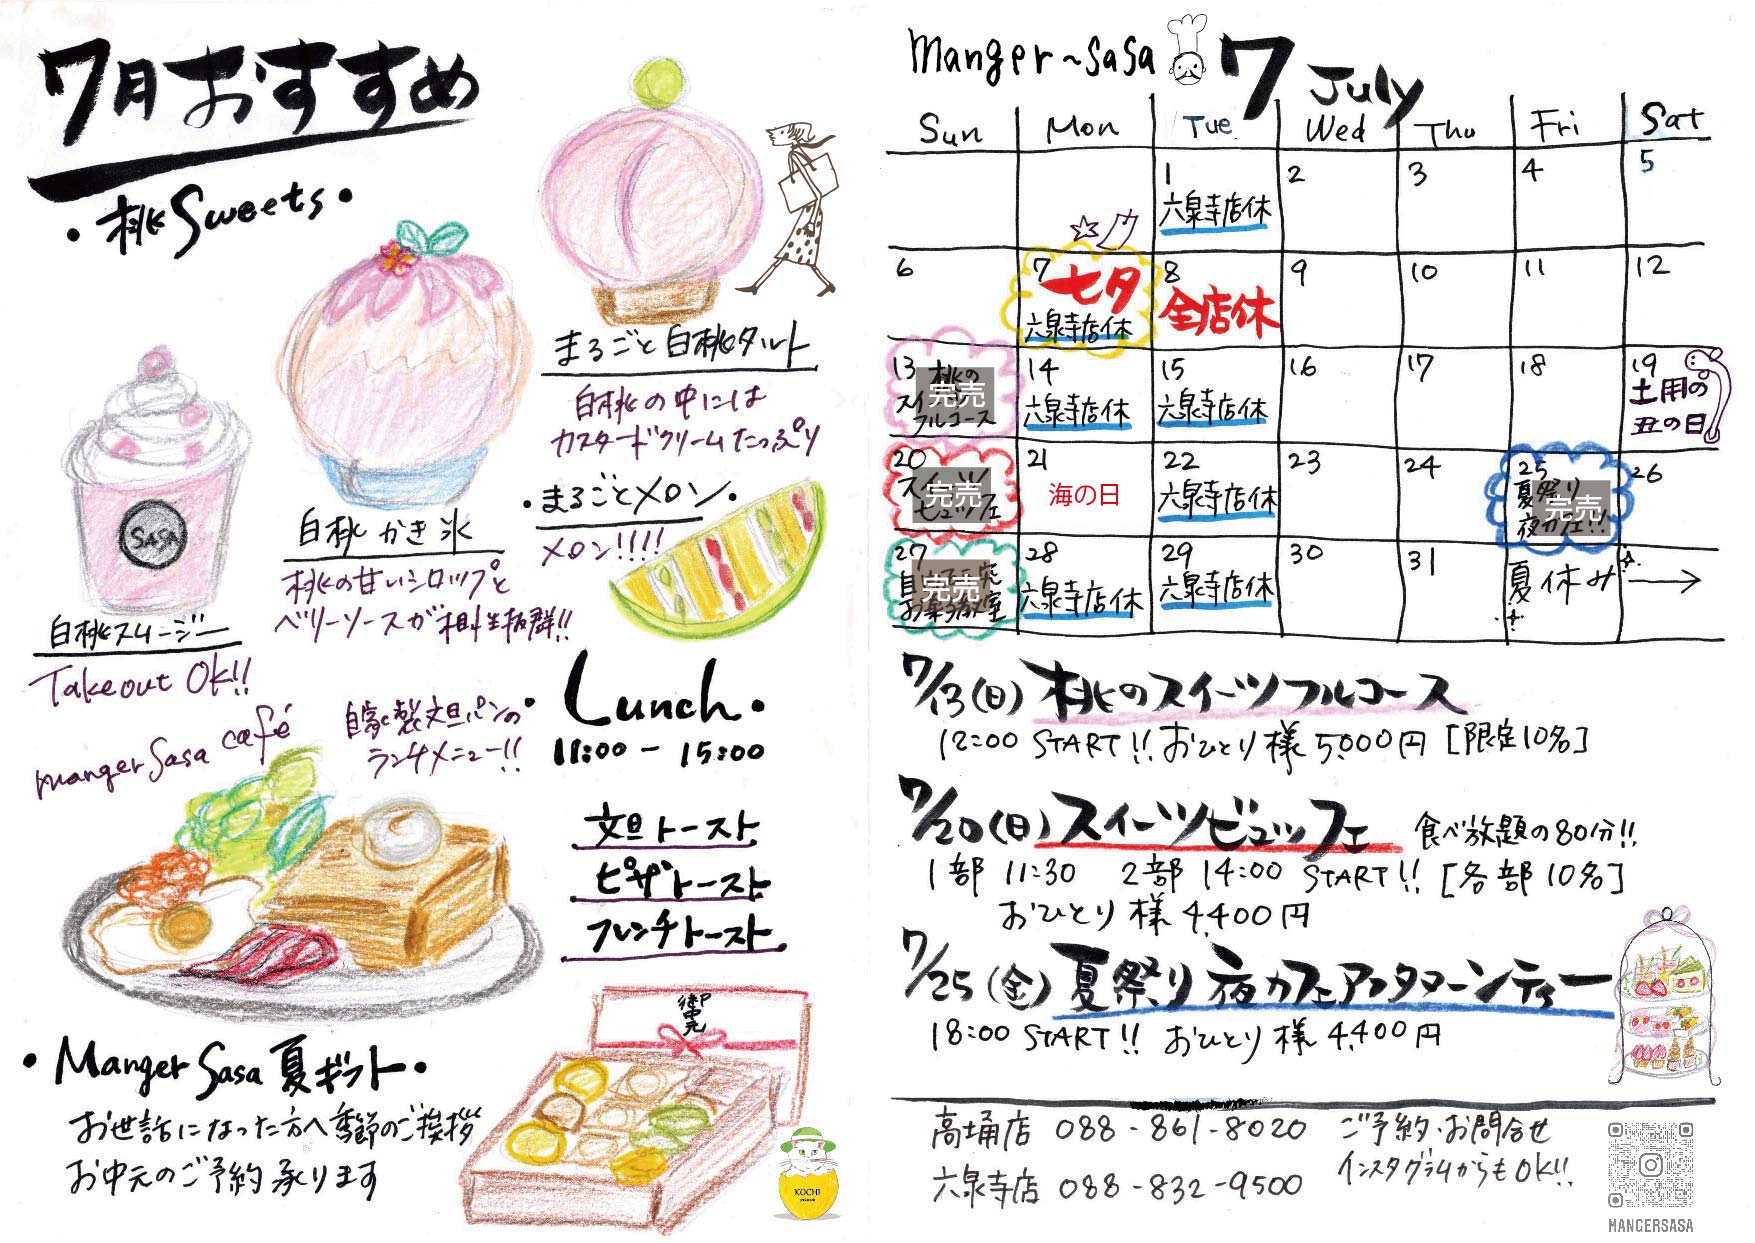 7月おすすめ
・桃Sweets・
まるごと白桃タルト
白桃の中には
カスタードクリームたっぷり
白桃かき氷
桃の甘いシロップと
ベリーソースが相性抜群!!
SASA
白桃スムージー
Takeout OK!!
・まるごとメロン・
メロン!!!!
manger Sasa café
自家製文旦パンの
ランチメニュー!!
・Lunch・
11:00 - 15:00
文旦トースト
ピザトースト
フレンチトースト
・Manger Sasa 夏ギフト・
お世話になった方へ季節のご挨拶
お中元のご予約承ります
御中元
KOCHI
manger~sasa 7 July
Sun Mon Tue Wed Thu Fri Sat
1 2 3 4 5
六泉寺店休
6 7 8 9 10 11 12
七夕 全店休
六泉寺店休
13 14 15 16 17 18 19
桃の
フルコース
完売
六泉寺店休 六泉寺店休
土用の
丑の日
20 21 22 23 24 25 26
完売
海の日
六泉寺店休
夏祭り
夜カフェ!!
完売
27 28 29 30 31
完売
六泉寺店休 六泉寺店休
夏休み→
7/13(日)桃のスイーツフルコース
12:00 START!! おひとり様5,000円[限定10名]
7/20(日)スイーツビュッフェ 食べ放題の80分!!
1部 11:30 2部 14:00 START!! [各部10名]
おひとり様4,400円
7/25(金)夏祭り夜カフェアフタヌーンティー
18:00 START!! おひとり様4,400円
高埇店 088-861-8020
六泉寺店 088-832-9500
ご予約・お問合せ
インスタグラムからもOK!!
MANGERSASA